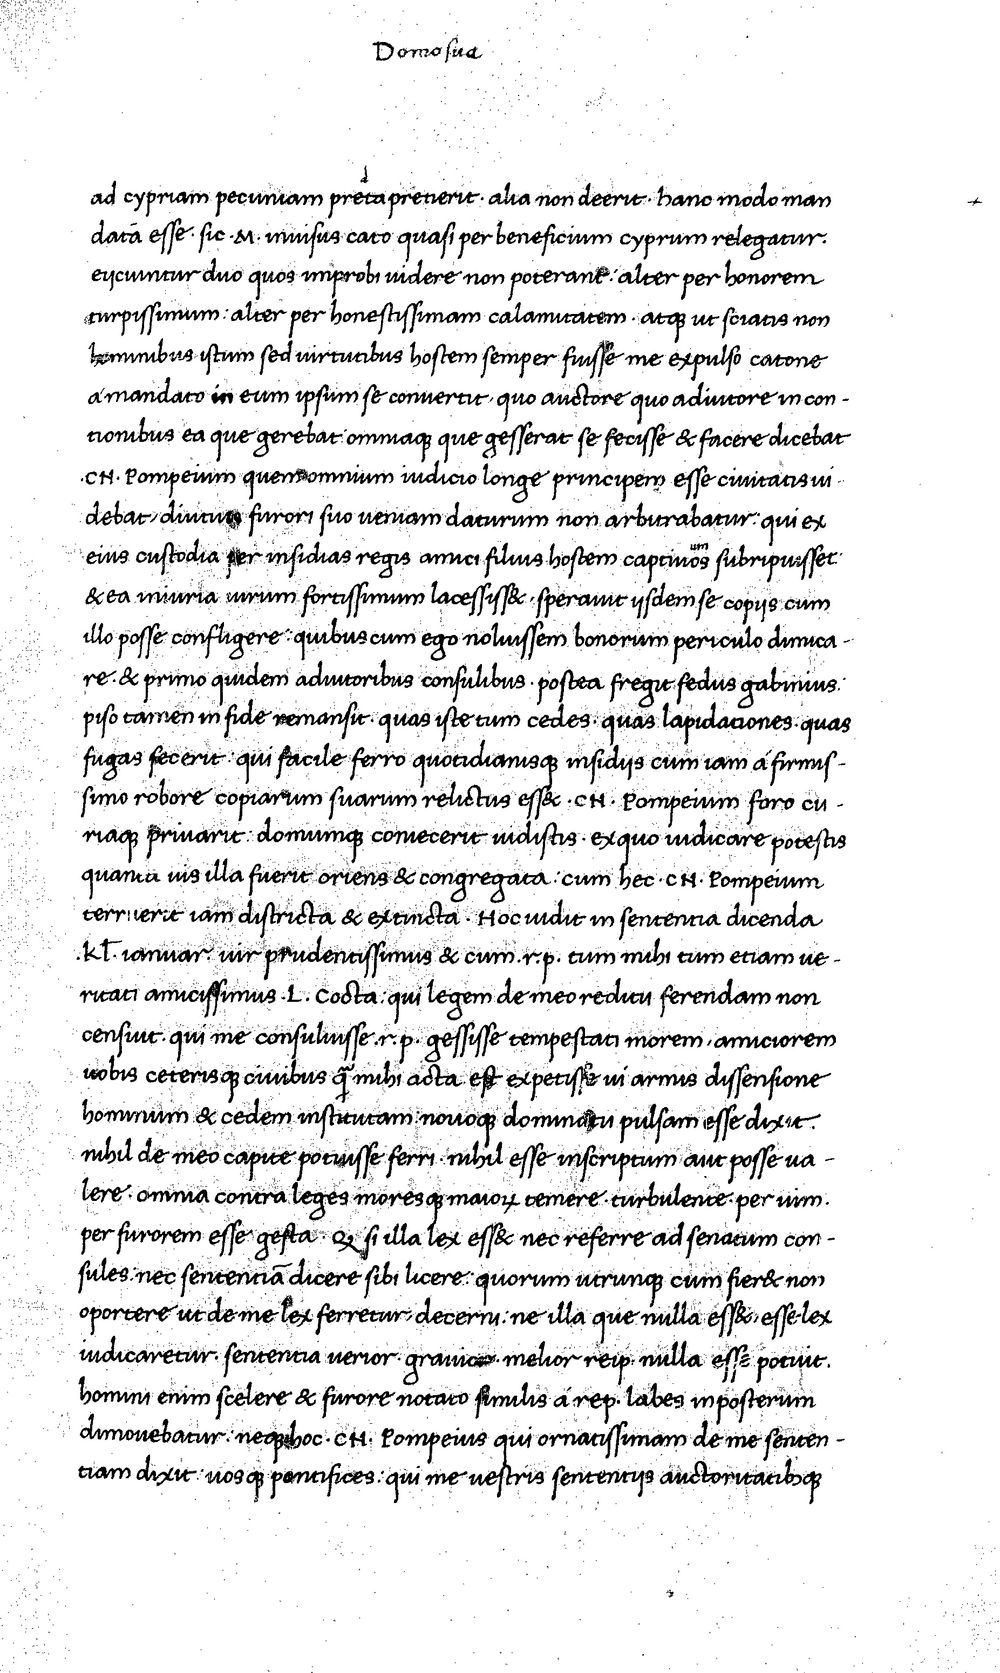 Domo sua
ad cypriam pecuniam pretapreterit · alia non deerit · hanc modo man
datā esse · sic · M · inuisus cato quasi per beneficium cyprum relegatur.
eijciuntur duo quos improbi uidere non poterant: alter per honorem
turpissimum: alter per honestissimam calamitatem · atq; ut sciatis non
hominibus istum sed uirtutibus hostem semper fuisse me expulso catone
a mandato in eum ipsum se conuertit, quo auctore quo adiutore in con-
tionibus ea que gerebat omniaq; que gesserat se fecisse & facere dicebat
·CN· Pompeium quem omnium iudicio longe principem esse ciuitatis ui-
debat, diutius furori suo ueniam daturum non arbitrabatur: qui ex
eius custodia per insidias regis amici filius hostem captiuos um subripuisset
& ea iniuria uirum fortissimum lacessiss& · sperauit ijsdem se copijs cum
illo posse confligere: quibus cum ego noluissem bonorum periculo dimica-
re · & primo quidem adiutoribus consulibus · postea fregit fedus gabinius:
piso tamen in fide remansit · quas iste tum cedes · quas lapidationes · quas
fugas fecerit: qui facile ferro quotidianisq; insidijs cum iam a firmis-
simo robore copiarum suarum relictus ess& · CN · Pompeium foro cu-
riaq; priuarit: domumq; coniecerit uidistis · ex quo iudicare potestis
quanta uis illa fuerit oriens & congregata: cum hec · CN · Pompeium
terruerit iam districta & extincta · Hoc uidit in sententia dicenda
·kł· ianuar: uir prudentissimus & cum .r.p. tum mihi tum etiam ue-
ritati amicissimus · L · Cocta: qui legem de meo reditu ferendam non
censuit · qui me consuluisse .r.p. gessisse tempestati morem, amiciorem
uobis ceterisq; ciuibus q̄ mihi acta est expetisse ui armis dissensione
hominum & cedem institutam nouoq; dominatu pulsam esse dixit.
nihil de meo capite potuisse ferri · nihil esse inscriptum aut posse ua-
lere · omnia contra leges moresq; maioꝝ temere · turbulente · per uim ·
per furorem esse gesta · Q; si illa lex ess& nec referre ad senatum con-
sules: nec sententiā dicere sibi licere: quorum utrunq; cum fier& non
oportere ut de me lex ferretur, decerni: ne illa que nulla ess&, esse lex
iudicaretur · sententia uerior · grauior · melior reip. nulla esse potuit.
homini enim scelere & furore notato similis a rep. labes in posterum
dimouebatur: neq; hoc · CN · Pompeius qui ornatissimam de me senten-
tiam dixit: uosq; pontifices: qui me uestris sententijs auctoritatibq;